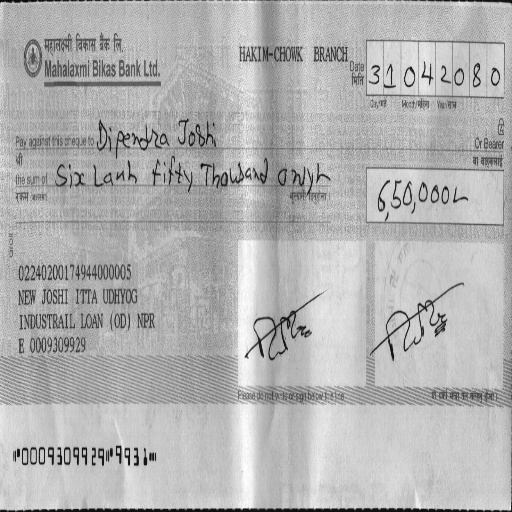 महालक्ष्मी विकास बैंक लि.
Mahalaxmi Bikas Bank Ltd.
HAKIM-CHOWK BRANCH
Date
मिति
31042080
Pay against this cheque to Dipendra Joshi
Or Bearer
श्री
the sum of Six Lakh fifty Thousand only
6,50,000/-
02240200174944000005
NEW JOSHI ITTA UDHYOG
INDUSTRAIL LOAN (OD) NPR
E 0009309929
Please do not write or sign below this line
"0009309929"993